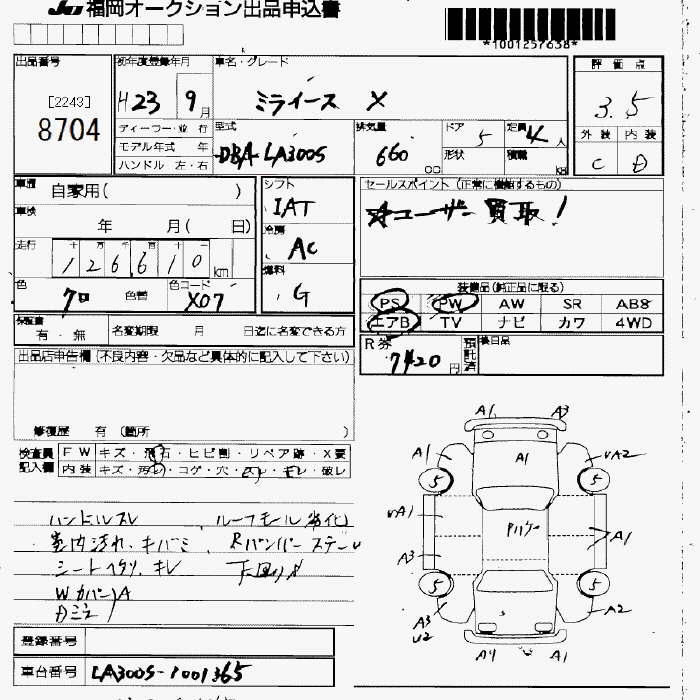 JU 福岡オークション出品申込書
*1001257638*
出品番号
[2243]
8704
初年度登録年月
H23 9月
ディーラー・並行
モデル年式 年
ハンドル 左・右
車名・グレード
ミライース X
型式
DBA-LA300S
排気量
660 CC
ドア
5
形状
定員
4人
積載
KG
評価点
3.5
外装 内装
C D
車歴
自家用( )
車検
年 月( 日)
走行
126610 km
色
クロ
色替
色コード
X07
シフト
IAT
冷房
AC
燃料
G
セールスポイント(正常に機能するもの)
☆ユーザー買取!
装備品(純正品に限る)
PS PW AW SR AB8
エアB TV ナビ カワ 4WD
保証書
有・無
名変期限 月 日迄に名変できる方
R券
7420円
預託済
後日品
出品店申告欄(不良内容・欠品など具体的に記入して下さい)
修復歴 有(箇所 )
検査員記入欄
FW キズ・飛石・ヒビ割・リペア跡・X要
内装 キズ・汚れ・コゲ・穴・スレ・キレ・破レ
ハンドルスレ
ルーフモール劣化
室内汚れ、キバミ
Rバンパーステー
シートヘタリ、キレ
下回りサ
WカバーA
A1 A3
A1 A1 UA2
5 5
UA1 Pハゲ A1
A3
5 5
A3 U2 A2
A4 A1
登録番号
車台番号
LA300S-1001365